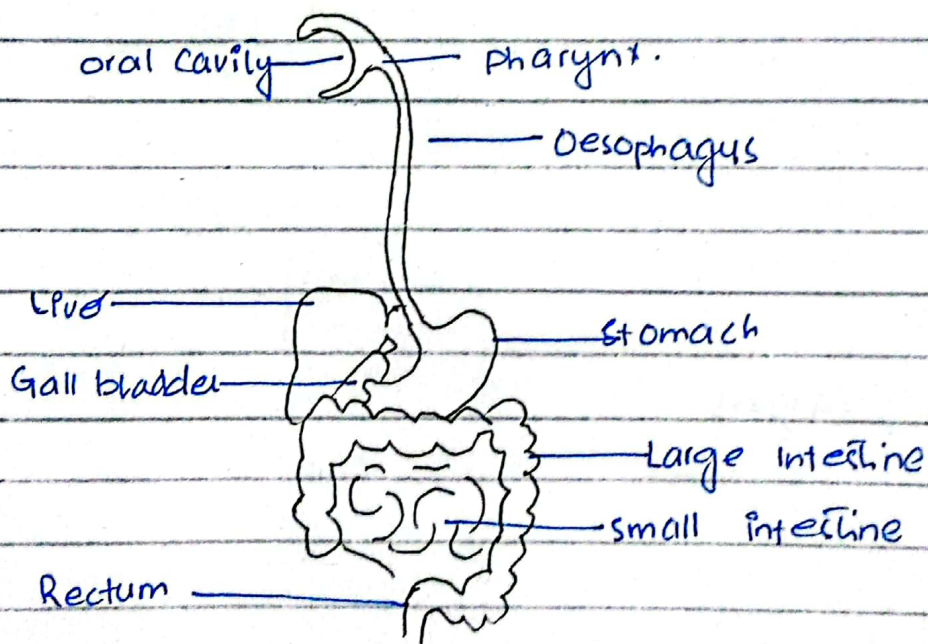 oral cavity
pharynx.
Oesophagus
Liver
Stomach
Gall bladder
Large intestine
small intestine
Rectum